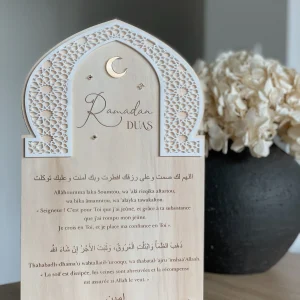 Ramadan
DUAS
اللهم لك صمت وعلى رزقك افطرت وبك امنت وعليك توكلت
Allahoumma laka Soumtou, wa 'alâ rizqika aftartou,
wa bika âmanntou, wa 'alayka tawakaltou.
« Seigneur ! C'est pour Toi que j'ai jeûné, et grâce à ta subsistance
que j'ai rompu mon jeûne.
Je crois en Toi, et je place ma confiance en Toi »
ذَهَبَ الظَّمَأُ وَابْتَلَّتِ الْعُرُوقُ، وَثَبَتَ الأَجْرُ إِنْ شَاءَ اللهُ
« La soif est dissipée, les veines sont abreuvées et la récompense
est assurée si Allah le veut. »